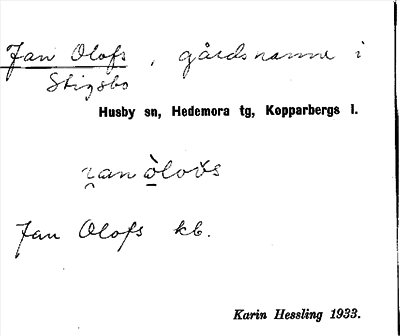 Jan Olofs, gårdsnamn i
Stigsbo
Husby sn, Hedemora tg, Kopparbergs l.
Jan Olofs kb.
Karin Hessling 1933.